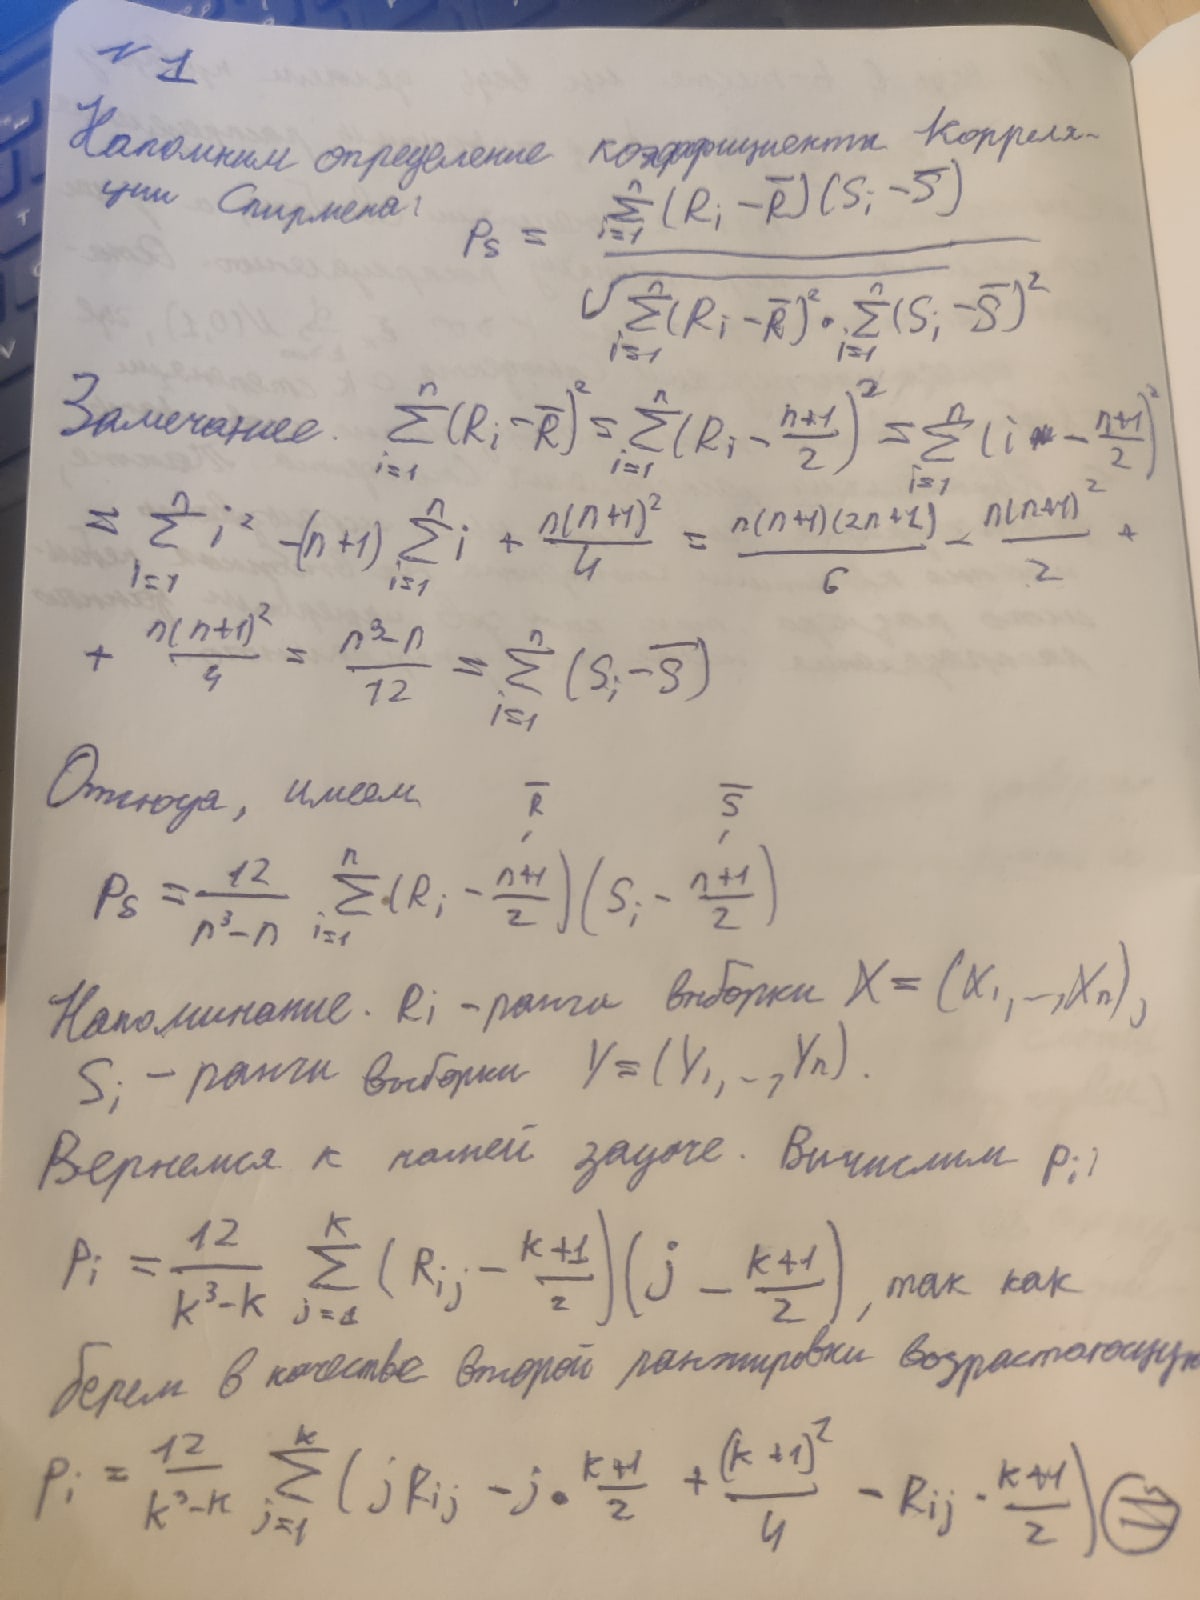 №1
Напомним определение коэффициента Корреля-
ции Спирмена:
ρ_S = \frac{\sum_{i=1}^{n}(R_i - \overline{R})(S_i - \overline{S})}{\sqrt{\sum_{i=1}^{n}(R_i - \overline{R})^2 \cdot \sum_{i=1}^{n}(S_i - \overline{S})^2}}
Замечание. \sum_{i=1}^{n}(R_i - \overline{R})^2 = \sum_{i=1}^{n}(R_i - \frac{n+1}{2})^2 = \sum_{i=1}^{n}(i - \frac{n+1}{2})^2
= \sum_{i=1}^{n} i^2 - (n+1)\sum_{i=1}^{n} i + \frac{n(n+1)^2}{4} = \frac{n(n+1)(2n+1)}{6} - \frac{n(n+1)^2}{2} +
+ \frac{n(n+1)^2}{4} = \frac{n^3-n}{12} = \sum_{i=1}^{n}(S_i - \overline{S})
Отсюда, имеем
\overline{R} \overline{S}
ρ_S = \frac{12}{n^3-n} \sum_{i=1}^{n}(R_i - \frac{n+1}{2})(S_i - \frac{n+1}{2})
Напоминание. R_i - ранги выборки X = (X_1, .., X_n),
S_i - ранги выборки Y = (Y_1, .., Y_n).
Вернемся к нашей задаче. Вычислим ρ_i:
ρ_i = \frac{12}{k^3-k} \sum_{j=1}^{k}(R_{ij} - \frac{k+1}{2})(j - \frac{k+1}{2}), так как
берем в качестве второй ранжировки возрастающую
ρ_i = \frac{12}{k^3-k} \sum_{j=1}^{k}(jR_{ij} - j \cdot \frac{k+1}{2} + \frac{(k+1)^2}{4} - R_{ij} \cdot \frac{k+1}{2}) =